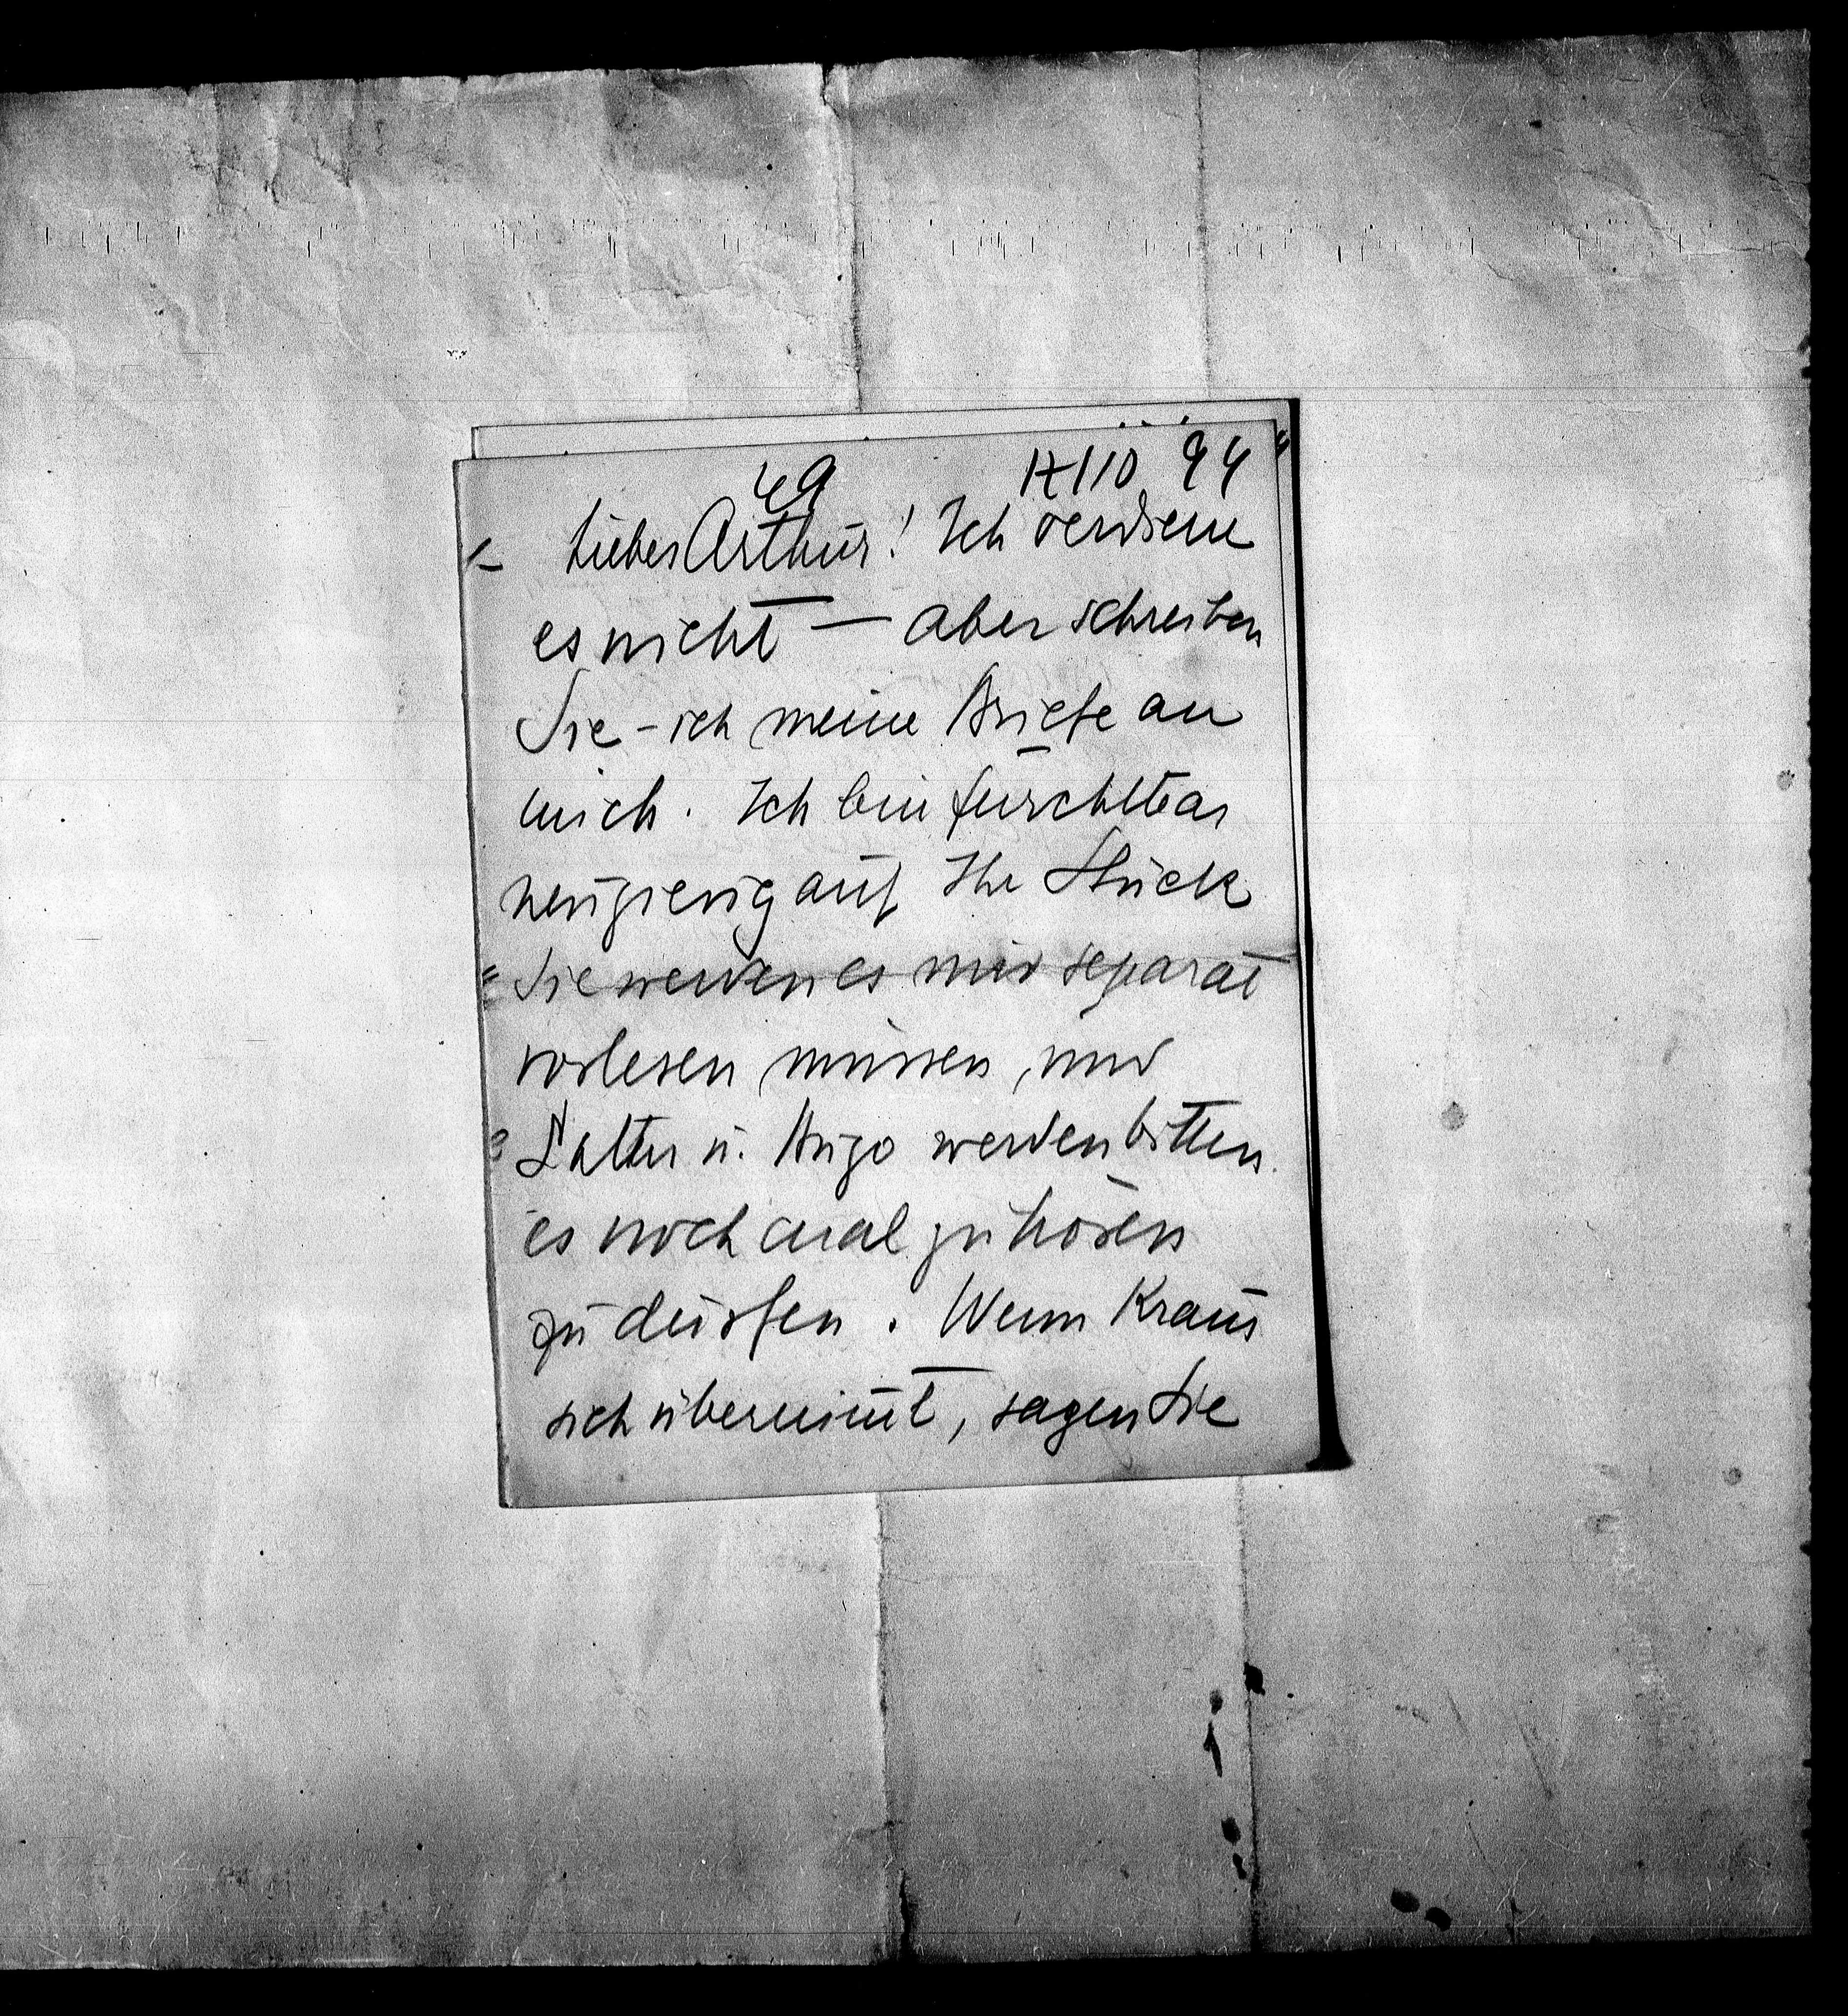 49 17/10 94
Lieber Arthur! Ich verdiene
es nicht — aber schreiben
Sie – ich meine Briefe an
mich. Ich bin furchtbar
neugierig auf Ihr Stück
Sie werden es mir separat
vorlesen müssen, und
Salten u. Hugo werden bitten
es noch einal zu hören
zu dürfen. Wenn Kraus
sich übernim̄t, sagen Sie